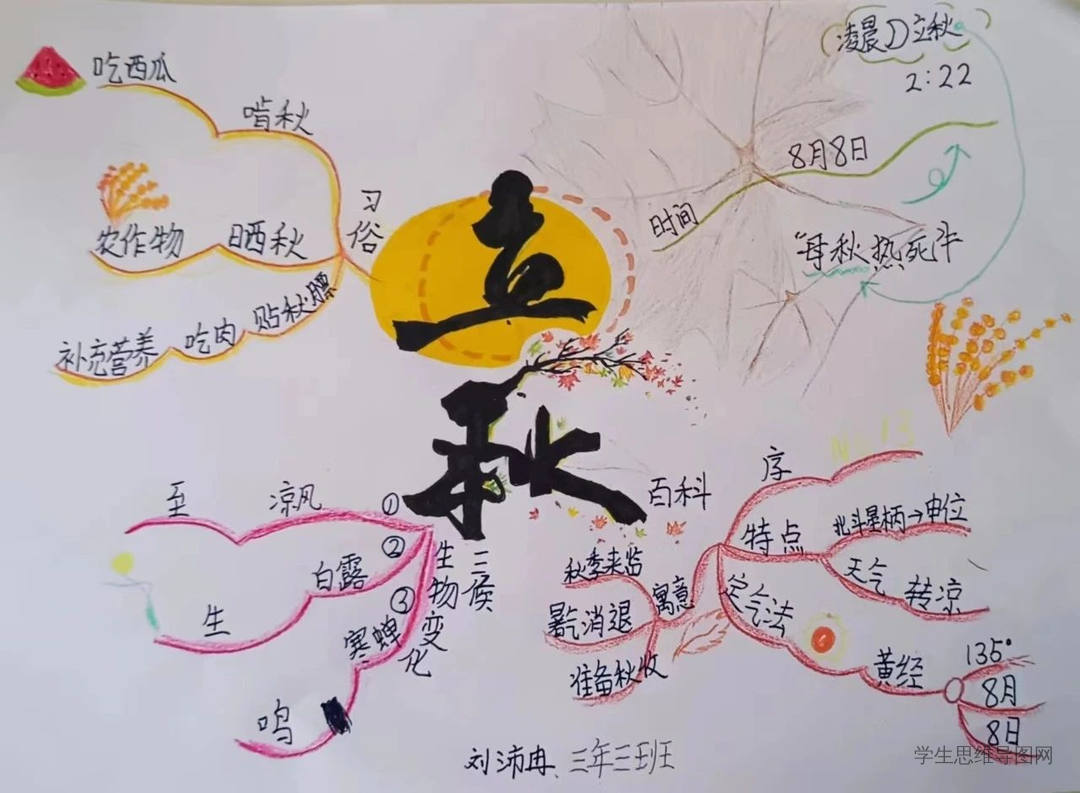 立秋
吃西瓜
啃秋
习俗
农作物
晒秋
补充营养
吃肉
贴秋膘
时间
8月8日
凌晨立秋
2:22
"母秋热死牛
百科
序
特点
北斗星柄→申位
天气
转凉
定气法
黄经
135°
8月
8日
寓意
秋季来临
暑气消退
准备秋收
三候
生物变化
①
凉风
至
②
白露
生
③
寒蝉
鸣
刘沛冉 三年三班
学生思维导图网